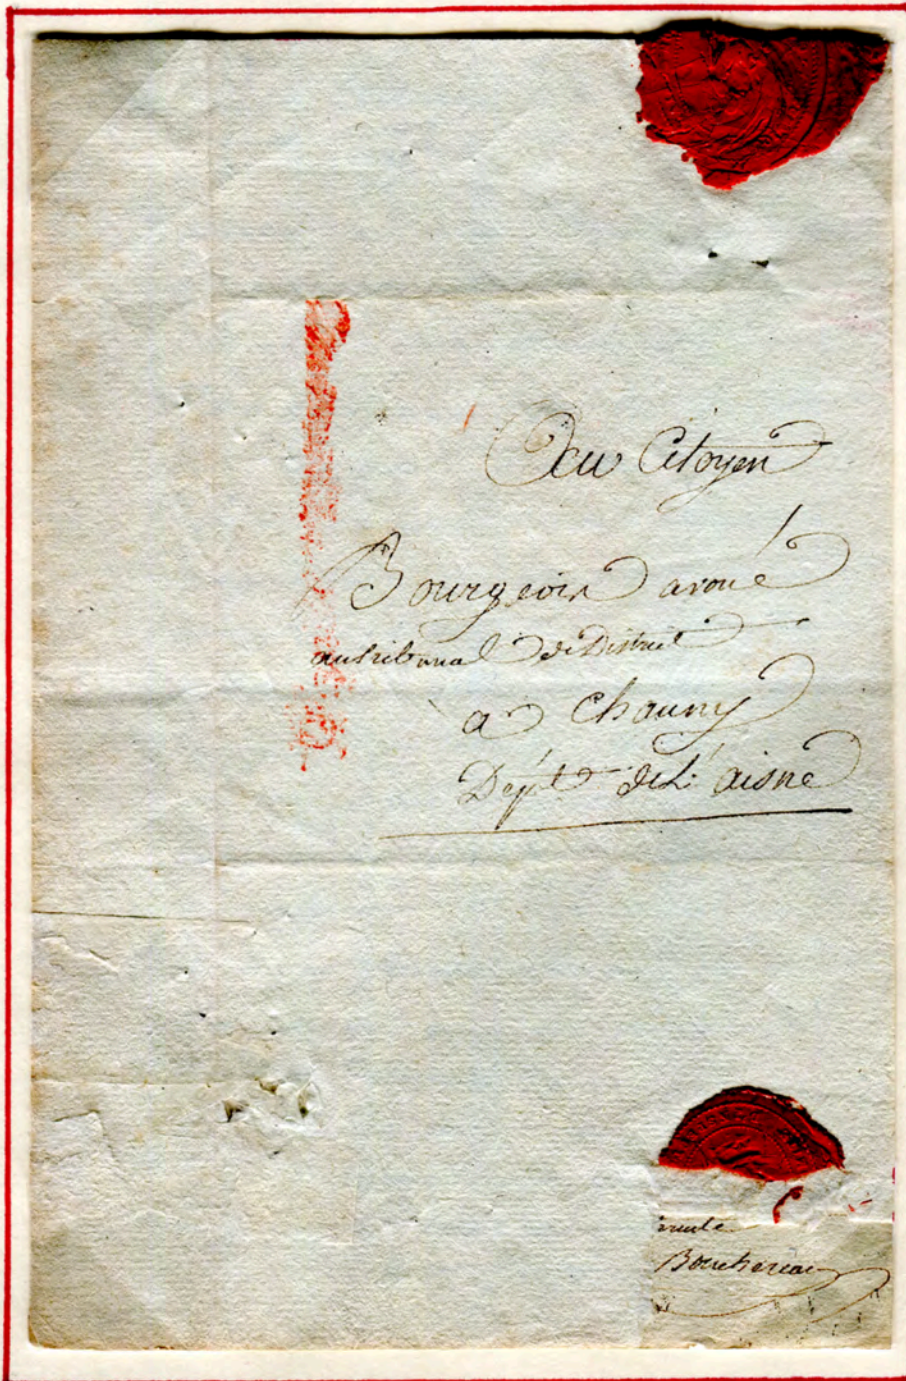 Au Citoyen
Bourgeois avoué
au tribunal de District
a Chauny
Dépt de L'aisne
Bouchereau